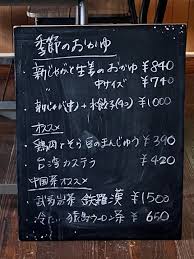 季節のおかゆ
・新じゃがと生姜のおかゆ ¥840
中サイズ ¥740
・新じゃが(中)+水餃子(4コ) ¥1000
オススメ
・鶏肉とそら豆のまんじゅう ¥390
・台湾カステラ ¥420
中国茶オススメ
・武夷岩茶 鉄羅漢 ¥1500
・冷たい ウーロン茶 ¥650